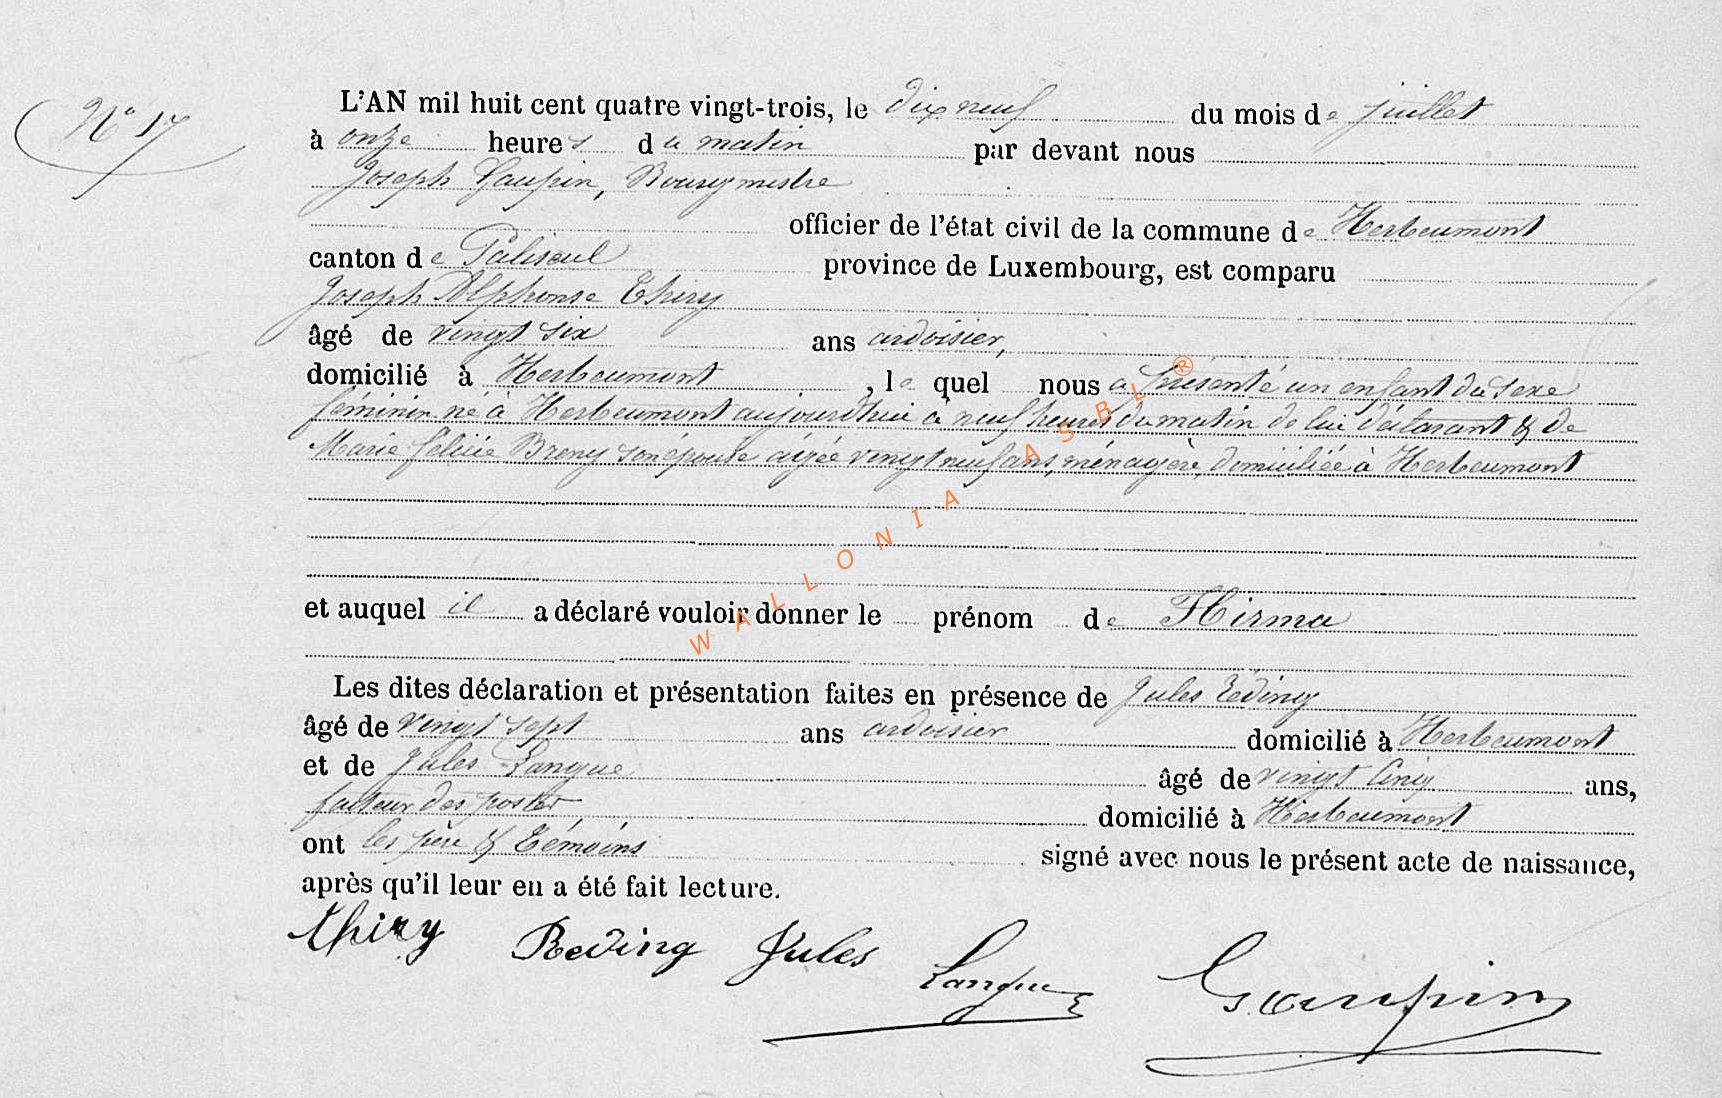 N° 17
L'AN mil huit cent quatre vingt-trois, le dix neuf du mois de juillet
à onze heures du matin par devant nous
Joseph Gaupin, Bourgmestre
officier de l'état civil de la commune de Herbeumont
canton de Paliseul province de Luxembourg, est comparu
Joseph Alphonse Thiry
âgé de vingt six ans ardoisier,
domicilié à Herbeumont, lequel nous a présenté un enfant du sexe
féminin né à Herbeumont aujourd'hui à neuf heures du matin de lui déclarant & de
Marie Félicie Breny son épouse âgée vingt neuf ans, ménagère, domiciliée à Herbeumont
et auquel il a déclaré vouloir donner le prénom de Hirma
Les dites déclaration et présentation faites en présence de Jules Réding
âgé de vingt sept ans ardoisier domicilié à Herbeumont
et de Jules Langue âgé de vingt cinq ans,
facteur des postes domicilié à Herbeumont
ont les père & témoins signé avec nous le présent acte de naissance,
après qu'il leur en a été fait lecture.
thiry Reding Jules Langue Gaupin
WALLONIA ASBL ®